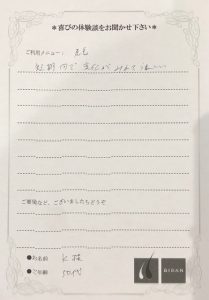 ＊喜びの体験談をお聞かせ下さい＊
ご利用メニュー： 育毛
短期間で変化が みえて
ご要望など、ございましたらどうぞ
●お名前 K様
●ご年齢 50代
BIKAN